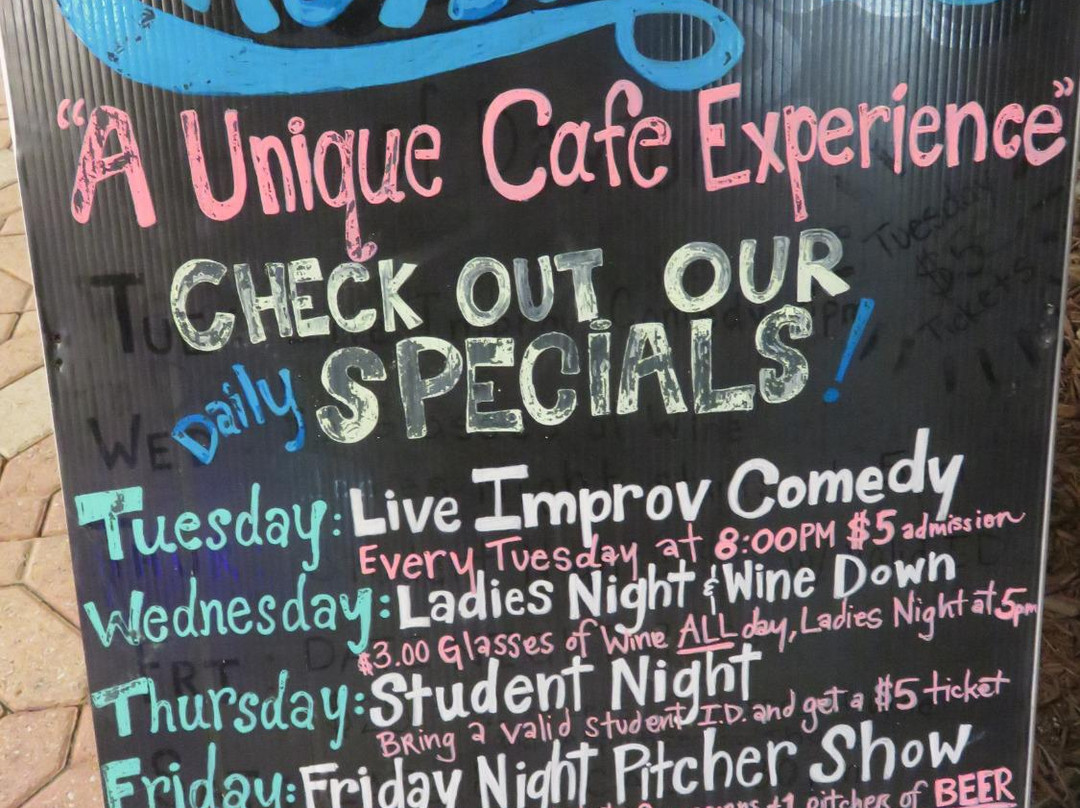 "A Unique Cafe Experience"
CHECK OUT OUR
Daily SPECiALS!
Tuesday: Live Improv Comedy
Every Tuesday at 8:00PM $5 admission
Wednesday: Ladies Night & Wine Down
$3.00 Glasses of Wine ALL day, Ladies Night at 5pm
Thursday: Student Night
Bring a valid student I.D. and get a $5 ticket
Friday: Friday Night Pitcher Show
pitcher of BEER
Tuesday
$5
Tickets